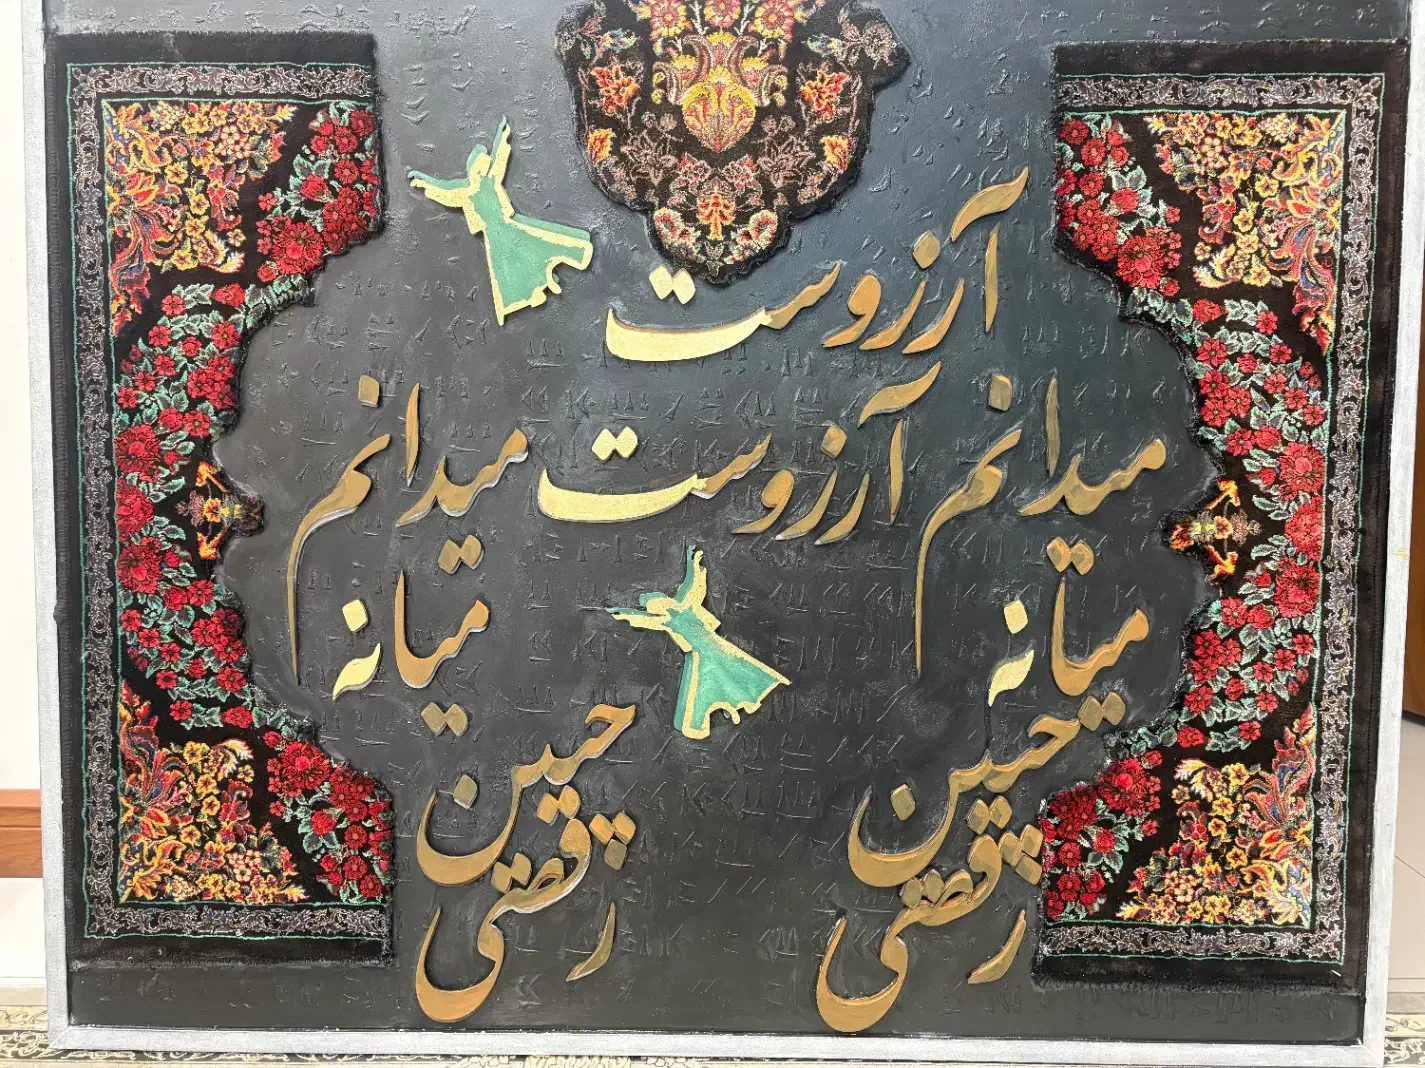 آرزوست
میدانم آرزوست میدانم
میانه میانه
چنین چنین
رقصی رقصی